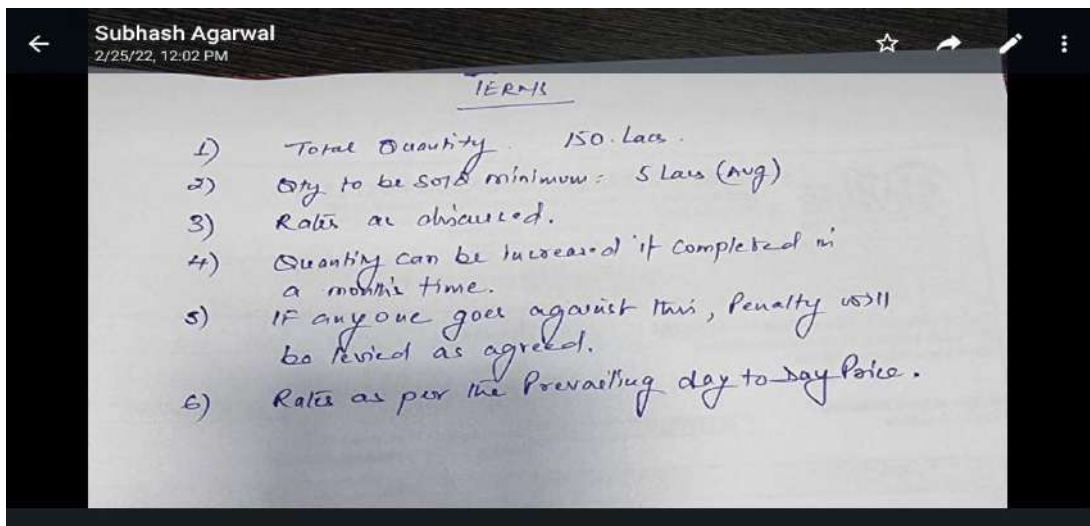 Subhash Agarwal
2/25/22, 12:02 PM
TERMS
1) Total Quantity. 150. Lacs.
2) Qty to be Sold minimum = 5 Lacs (Avg)
3) Rates as discussed.
4) Quantity can be increased if completed in
a month's time.
5) IF anyone goes against this, Penalty will
be levied as agreed.
6) Rates as per the Prevailing day to Day Price.